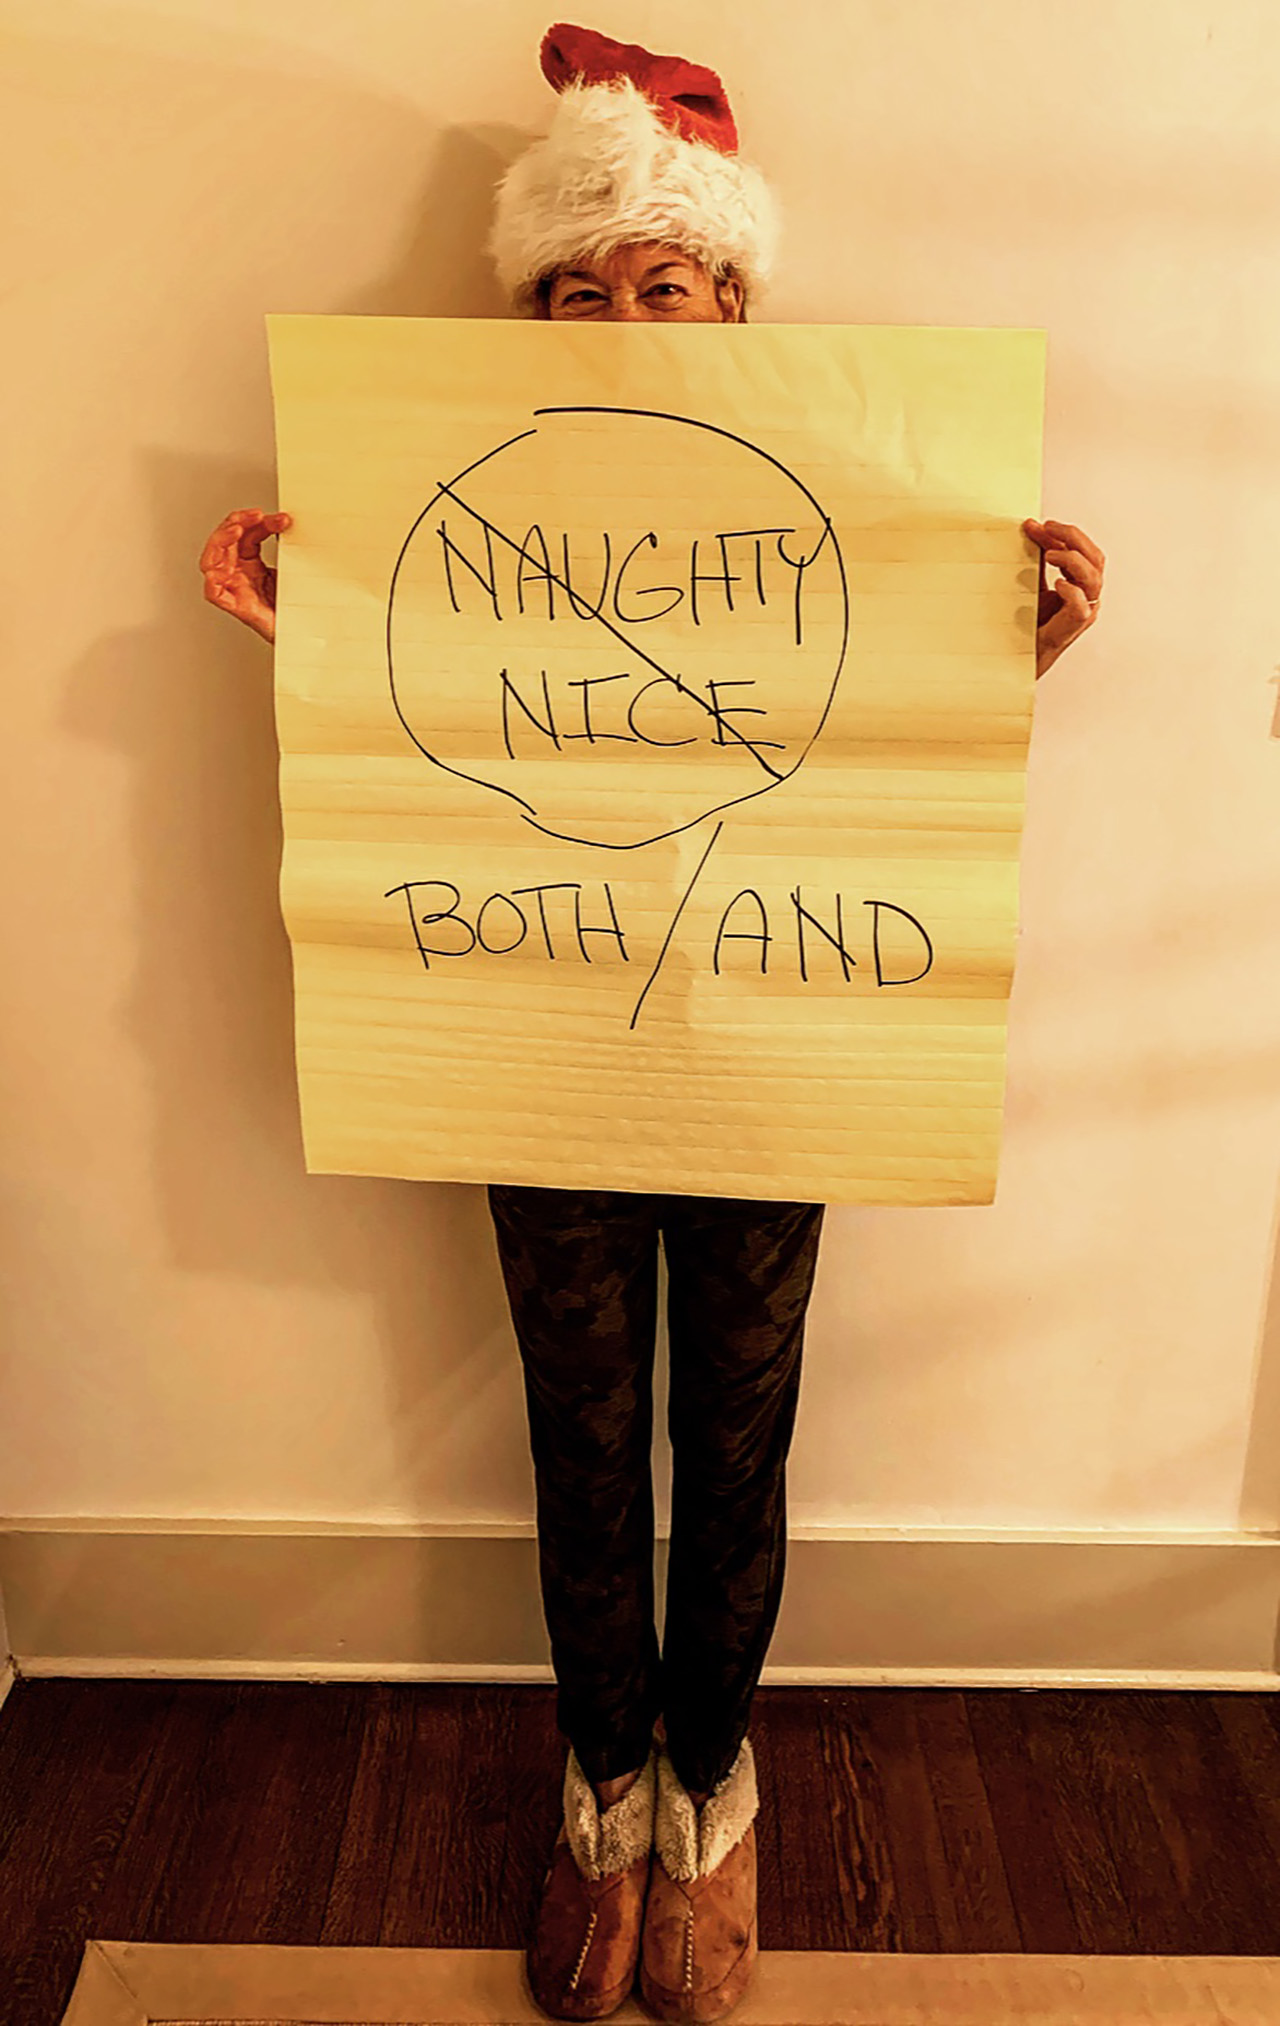 NAUGHTY
NICE
BOTH/AND